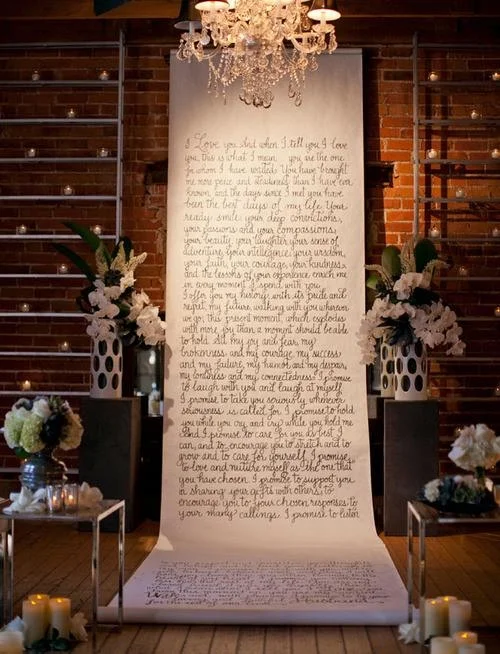 I Love you. And when I tell you I love
you, this is what I mean you are the one
for whom I have waited. You have brought
me more peace and steadiness than I have ever
known, and the days since I met you have
been the best days of my life. Your
ready smile, your deep convictions,
your passions and your compassions,
your beauty, your laughter, your sense of
adventure, your intelligence, your wisdom,
your faith, your courage, your kindness
and the lessons of your experience enrich me
in every moment I spend with you
I offer you my history with its pride and
regret, my future, walking with you wherever
we go; this present moment, which explodes
with more joy than a moment should be able
to hold. All my joy and fear, my
brokenness and my courage, my success
and my failure, my humor and my despair,
my loneliness and my connectedness. I promise
to laugh with you and laugh at myself
I promise to take you seriously whenever
seriousness is called for. I promise to hold
you while you cry, and cry while you hold me
And I promise to care for you as best I
can, and to encourage you to stretch and to
grow and to care for yourself. I promise
to love and nurture myself as the one that
you have chosen. I promise to support you
in sharing your gifts with others, to
encourage you to your chosen responses to
your many callings. I promise to listen